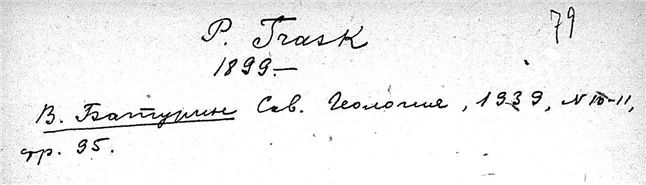 P. Trask 79
1899.—
В. Батурин Сов. Геология, 1939, N 10-11,
стр. 95.